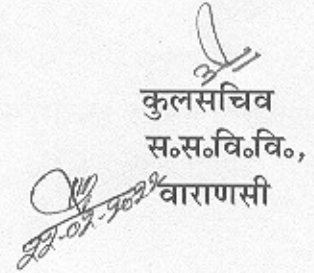 कुलसचिव
स॰स॰वि॰वि॰,
वाराणसी
22-02-2022